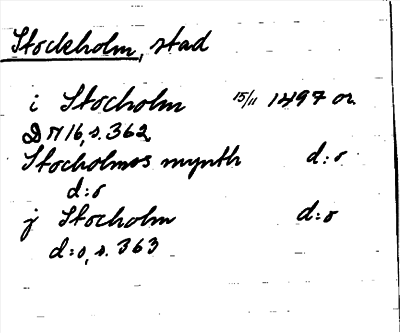 Stockholm, stad
i Stocholm 15/11 1497 or.
D 716, s. 362
Stocholmss mynth d:o
d:o
j Stocholm d:o
d:o, s. 363